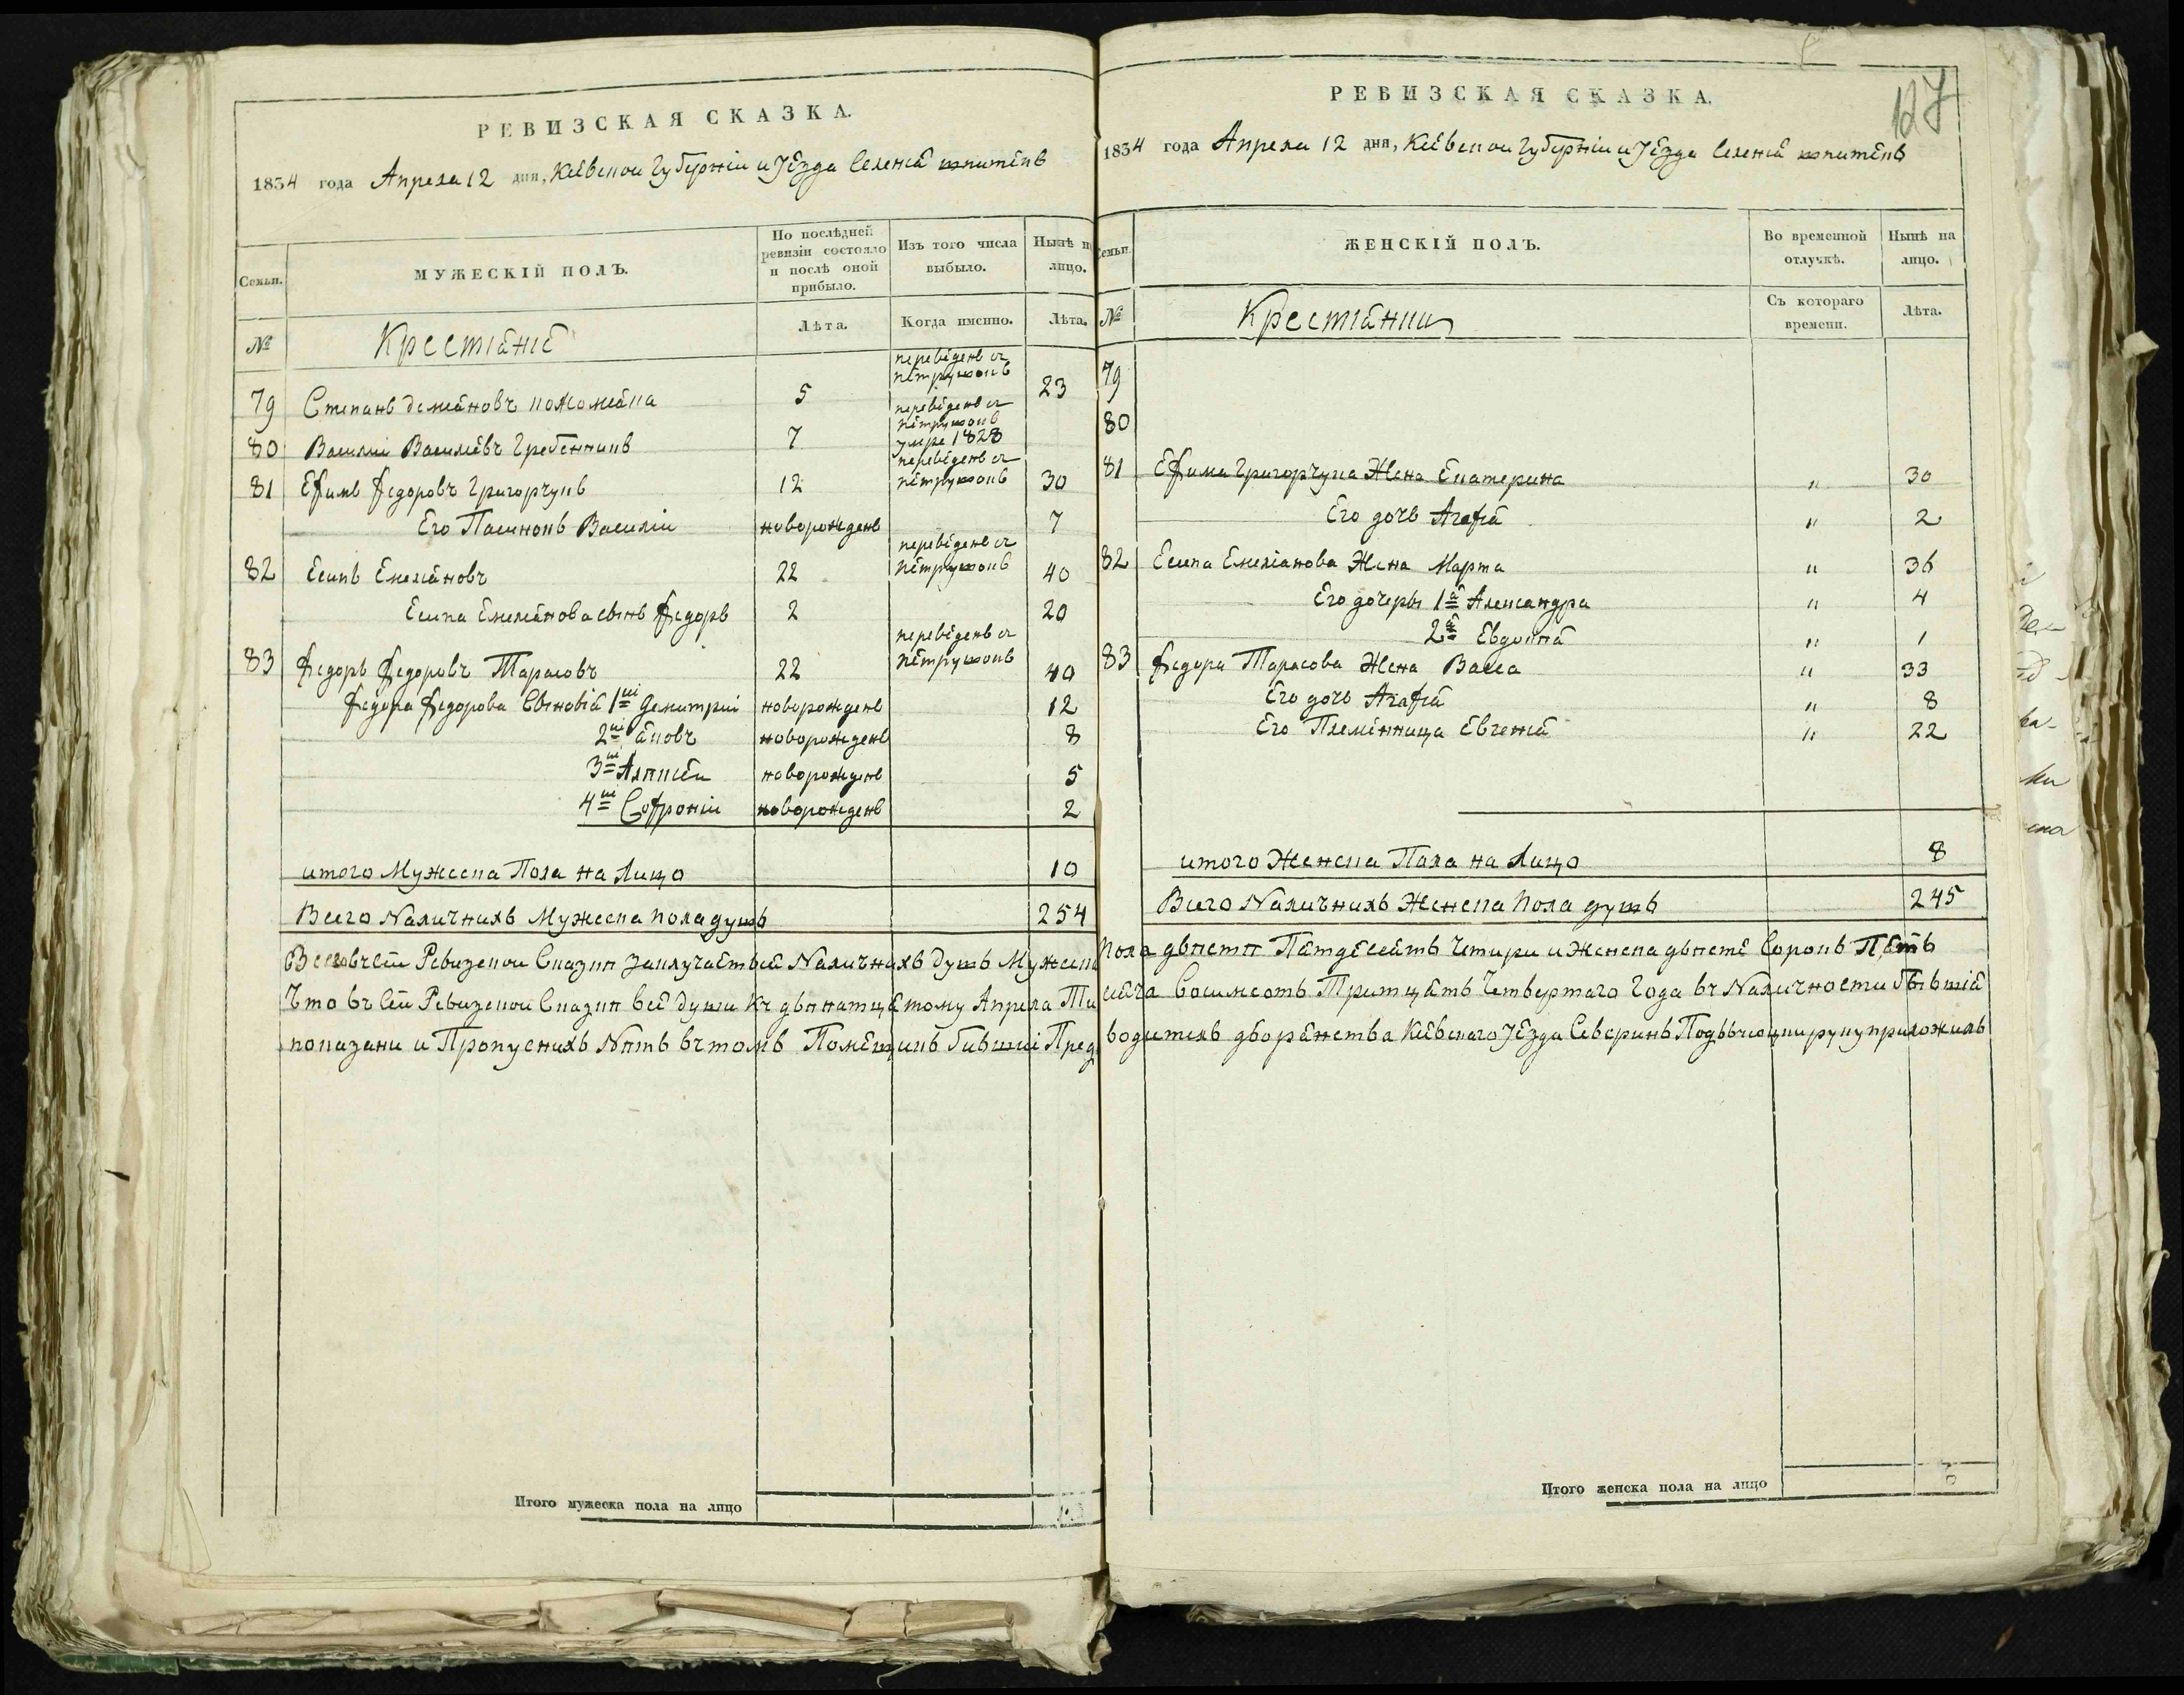 РЕВИЗСКАЯ СКАЗКА.
1834 года Апреля 12 дня, Кіевскои Губерніи и Уезда Селенія
Семьи.
МУЖЕСКІЙ ПОЛЪ.
По послѣдней ревизіи состояло и послѣ оной прибыло.
Изъ того числа выбыло.
Нынѣ на лицо.
№
Крестіане
Лѣта.
Когда именно.
Лѣта.
79 Степанъ 5 переведенъ съ Петрушокъ 23
80 Василіи Василіевъ Гребенникъ 7 переведенъ съ Петрушокъ умре 1828
81 Ефимъ Федоровъ Григорчукъ 12 переведенъ съ Петрушокъ 30
Его Пасинокъ Василіи новорожденъ 7
82 Есипъ Емеліановъ 22 переведенъ съ Петрушокъ 40
Есипа Емеліанова сынъ Федоръ 2 20
83 Федоръ Федоровъ Тарасовъ 22 переведенъ съ Петрушокъ 40
Федора Федорова Сыновія 1ій Демитріи новорожденъ 12
2ій Яковъ новорожденъ 8
3ій новорожденъ 5
4ій Софроніи новорожденъ 2
итого Мужеска Пола на Лицо 10
Всего Наличнихъ Мужеска пола душъ 254
Итого мужеска пола на лицо
РЕВИЗСКАЯ СКАЗКА.
127
1834 года Апреля 12 дня, Кіевскои Губерніи и Уезда Селенія
Семьи.
ЖЕНСКІЙ ПОЛЪ.
Во временной отлучкѣ.
Нынѣ на лицо.
№
Крестіанки
Съ котораго времени.
Лѣта.
79
80
81 Ефима Григорчука Жена Екатерина " 30
Его дочь Агафія " 2
82 Есипа Емеліанова Жена Марта " 36
Его дочеры 1я Александра " 4
2я Евдокия " 1
83 Федора Тарасова Жена Васса " 33
Его дочь Агафія " 8
Его Племінница Евгенія " 22
итого Женска Пола на Лицо 8
Всего Наличнихъ Женска пола душъ 245
Всего въ сей Ревизской Сказки заключается Наличнихъ душъ Мужеска Пола двести Пятдесятъ Четири и Женска двесте Сорокъ Пять
Что въ Сей Ревизской Сказки все души къ двенатцятому Апреля Тисяча Восимсотъ Тритцять Четвертаго Года въ Наличности бывшія
показани и Пропускихъ Нетъ въ томъ Помещикъ бившіи Предводитель дворянства Кіевскаго Уезда Северинъ руку приложилъ
Итого женска пола на лицо